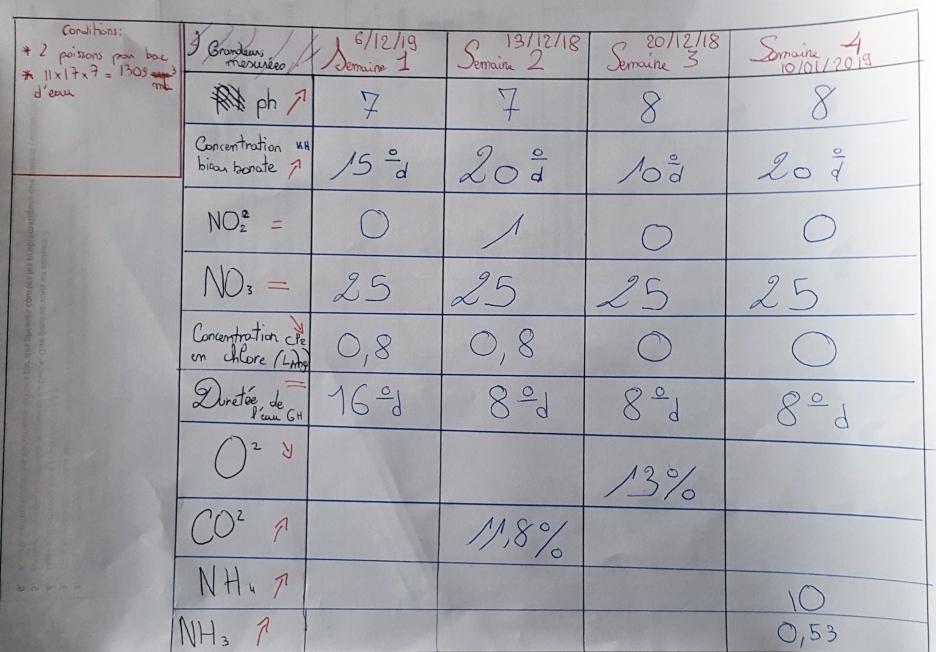 Conditions:
* 2 poissons par bac
* 11x17x7 = 1309 ml
d'eau
Grandeurs mesurées
6/12/19 Semaine 1
13/12/18 Semaine 2
20/12/18 Semaine 3
Semaine 4 10/01/2019
ph ↗ 7 7 8 8
Concentration KH
bicarbonate ↗ 15°d 20°d 10°d 20°d
NO₂ = 0 1 0 0
NO₃ = 25 25 25 25
Concentration ↘
en chlore 0,8 0,8 0 0
Duretée de =
l'eau GH 16°d 8°d 8°d 8°d
O² ↘ 13%
CO² ↗ 11,8%
NH₄ ↗ 10
NH₃ ↗ 0,53